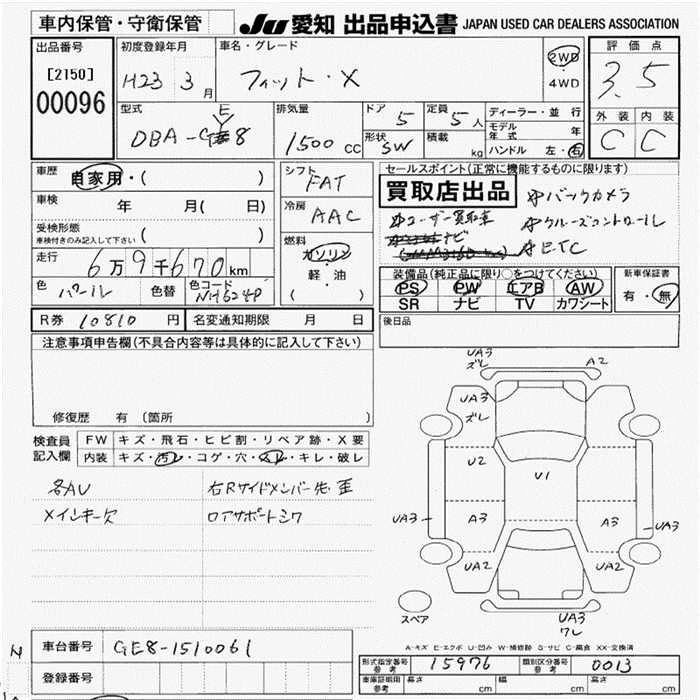 車内保管・守衛保管
JU 愛知 出品申込書 JAPAN USED CAR DEALERS ASSOCIATION
出品番号
[2150]
00096
初度登録年月
H23 3月
車名・グレード
フィット・X
2WD
・
4WD
評価点
3.5
外装 内装
C C
型式
DBA-GE8
排気量
1500 cc
ドア 5
形状 SW
定員 5人
積載 kg
ディーラー・並行
モデル年式 年
ハンドル 左・右
車歴
自家用・( )
車検 年 月( 日)
受検形態
車検付きのみ記入して下さい ( )
走行 6万9千670km
色 パール 色替 色コード NH624P
シフト
FAT
冷房
AAC
燃料
ガソリン
軽・油
( )
セールスポイント(正常に機能するものに限ります)
買取店出品
*バックカメラ
*ユーザー買取車
*クルーズコントロール
ナビ
*ETC
装備品(純正品に限り○をつけてください)
PS PW エアB AW
SR ナビ TV カワシート
新車保証書
有・無
R券 10810 円 名変通知期限 月 日
後日品
注意事項申告欄(不具合内容等は具体的に記入して下さい)
修復歴 有 〔箇所 〕
検査員記入欄
FW キズ・飛石・ヒビ割・リペア跡・X要
内装 キズ・汚レ・コゲ・穴・スレ・キレ・破レ
各AU
メインキー欠
右Rサイドメンバー先・歪
ロアサポートミワ
UA3
ズレ
A2
UA3
ズレ
U2
U1
UA3
A3
A3
UA3
UA2
UA2
スペア
UA3
ワレ
A-キズ E-エクボ U-凹み W-補修跡 S-サビ C-腐食 XX-交換済
車台番号 GE8-1510061
登録番号
型式指定番号
参考
15976
類別区分番号
参考
0013
車庫証明用
参考
長さ cm 幅 cm 高さ cm